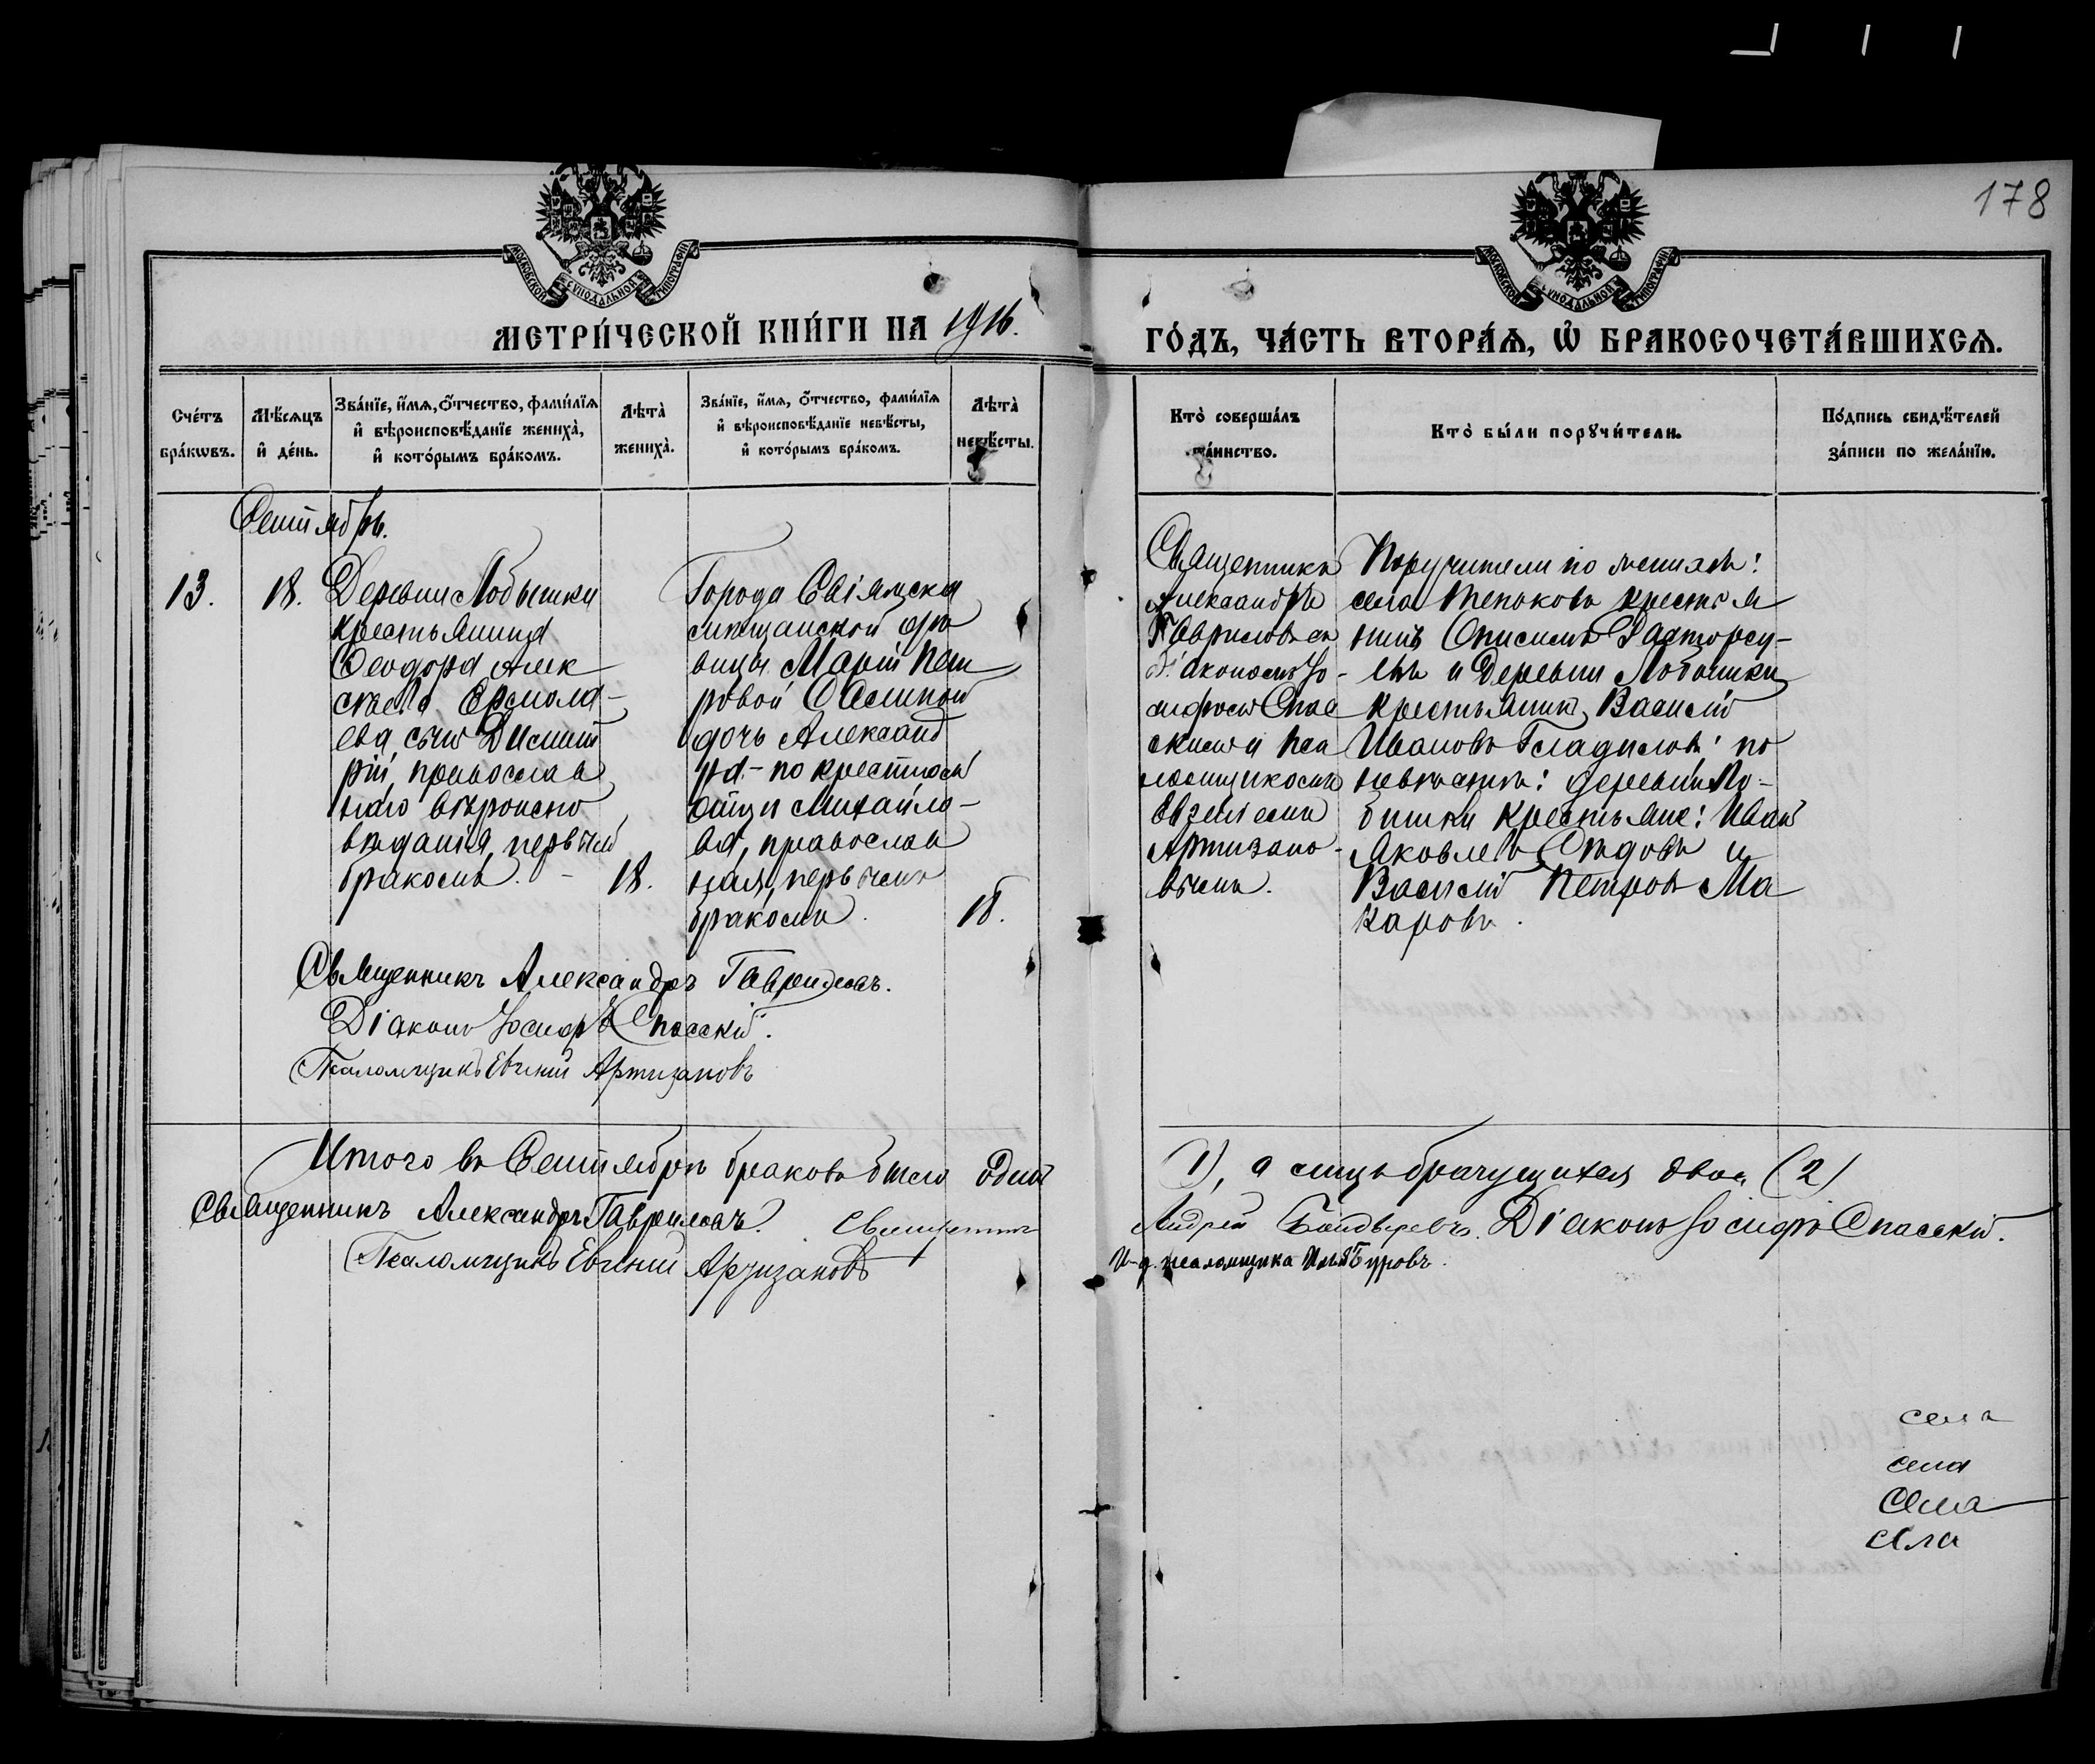 178
МОСКОВСКОЙ СУНОДАЛЬНОЙ ТИПОГРАФІИ
МОСКОВСКОЙ СУНОДАЛЬНОЙ ТИПОГРАФІИ
МЕТРИ́ЧЕСКОЙ КНИ́ГИ НА 1916.
ГО́ДЪ, ЧА́СТЬ ВТОРА́Ѧ, Ѽ БРАКОСОЧЕТА́ВШИХСѦ.
Сче́тъ бра́кѡвъ.
Мѣ́сяцъ и҆ де́нь.
Зва́нїе, и҆́мѧ, ѻ҆́тчество, фами́лїѧ
и҆ вѣроисповѣ́данїе жениха̀,
и҆ кото́рымъ бра́комъ.
Лѣта̀ жениха̀.
Зва́нїе, и҆́мѧ, ѻ҆́тчество, фами́лїѧ
и҆ вѣроисповѣ́данїе невѣ́сты,
и҆ кото́рымъ бра́комъ.
Лѣта̀ невѣ́сты.
Кто̀ соверша́лъ
та́инство.
Кто̀ бы́ли порꙋчи́тели.
По́дпись свидѣ́телей
за́писи по жела́нїю.
Сентябрь.
13.
18.
Деревни Лобышки
крестьянина
Ѳеодора Алек
сѣева Ермола-
ева, сынъ Димит
рій, православ
наго вѣроиспо
вѣданія, первымъ
бракомъ. -
18.
Города Свіяжска
мѣщанской дѣ
вицы Маріи Пет
ровой
дочь Александ
ра - по крестном
отцу Михайло-
ва, православ
ная, первымъ
бракомъ.
18.
Священникъ
Александръ
Гавриловъ съ
діакономъ Іо-
сифомъ Спас
скимъ и пса
ломщикомъ
Евгеніемъ
Артизано-
вымъ.
Поручители по женихѣ:
села крестья
нинъ Онисимъ
и деревни Лобышки
крестьянинъ Василій
Ивановъ Гладиловъ; по
невѣстѣ: деревни Ло-
бышки крестьяне: Иванъ
Яковлевъ Сѣдовъ и
Василій Петровъ Ма
каровъ.
Священникъ Александръ Гавриловъ.
Діаконъ Іосифъ Спасскій.
Псаломщикъ Евгеній Артизановъ
Итого въ Сентябрѣ браковъ было одинъ (1), а лицъ брачущихся двое (2)
Священникъ Александръ Гавриловъ. Священникъ Андрей Діаконъ Іосифъ Спасскій.
Псаломщикъ Евгеній Артизановъ
И. д. псаломщика Илья Буровъ.
села
села
села
села